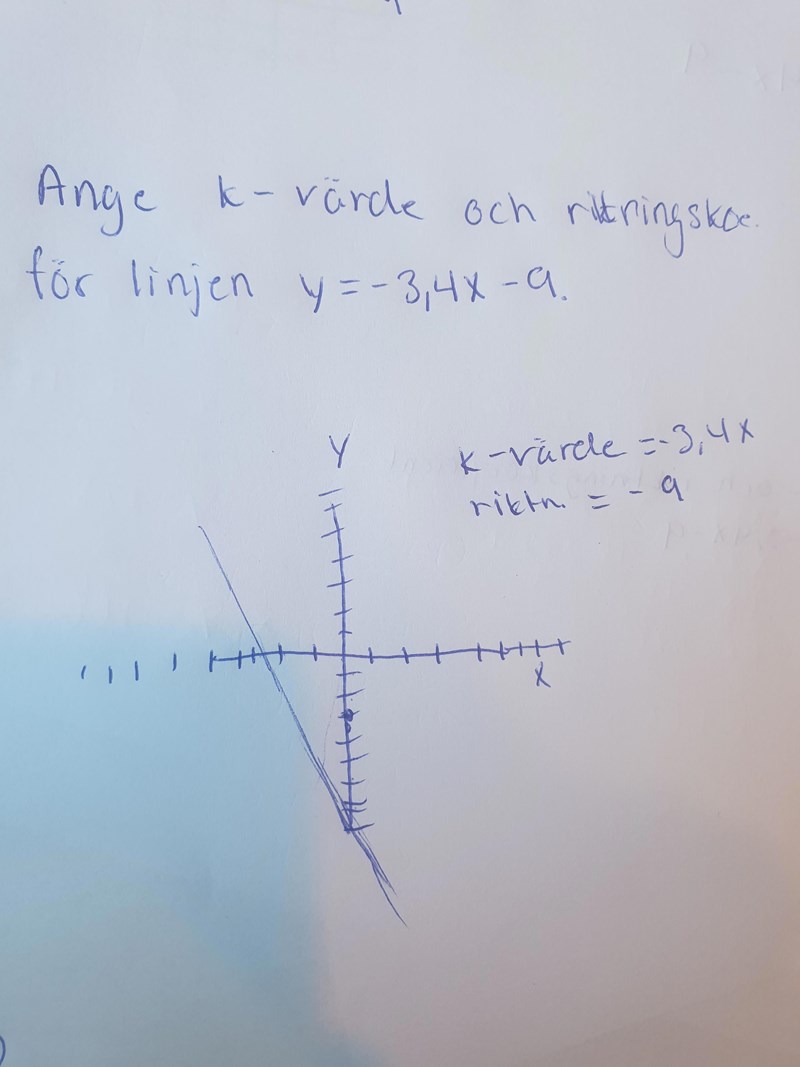 Ange k-värde och riktringskoe.
för linjen y=-3,4x-9.
k-värde =-3,4x
riktn. = -9
y
x